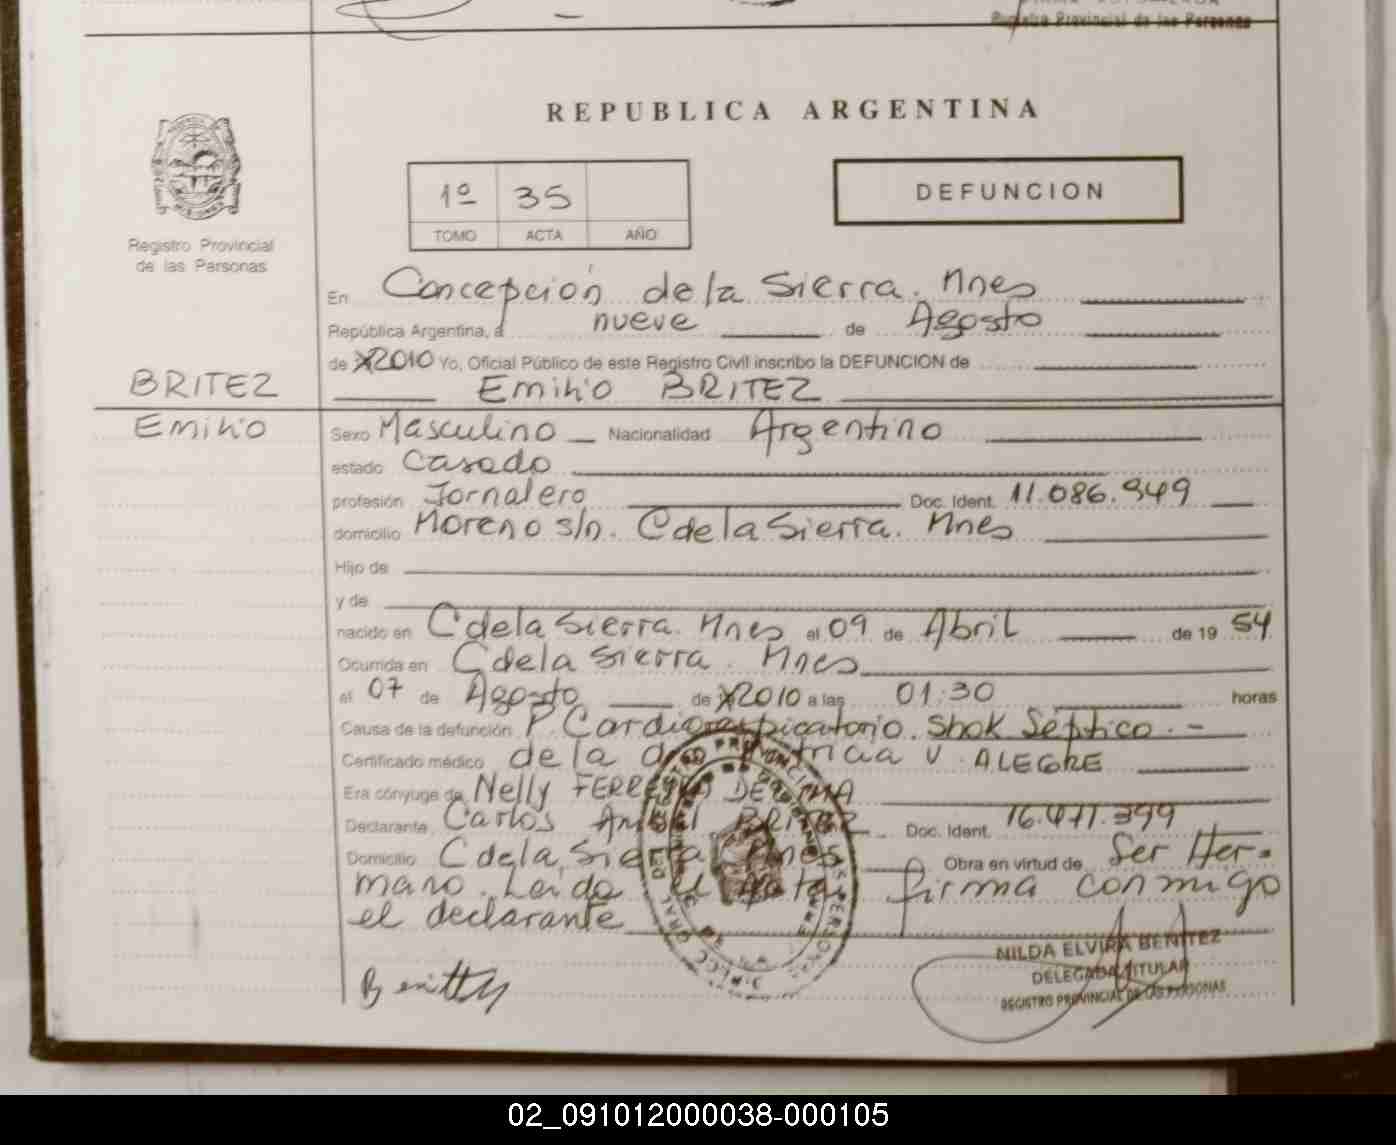 Registro Provincial de las Personas
REPUBLICA ARGENTINA
1º 35
TOMO ACTA AÑO
DEFUNCION
Registro Provincial
de las Personas
BRITEZ
Emilio
En Concepción de la Sierra. Mnes
República Argentina, a nueve de Agosto
de 2010 Yo, Oficial Público de este Registro Civil inscribo la DEFUNCION de
Emilio BRITEZ
Sexo Masculino Nacionalidad Argentino
estado Casado
profesión Jornalero Doc. Ident. 11.086.949
domicilio Moreno s/n. C de la Sierra. Mnes
Hijo de
y de
nacido en C de la Sierra. Mnes el 09 de Abril de 19 54
Ocurrida en C de la Sierra. Mnes
el 07 de Agosto de 2010 a las 01:30 horas
Causa de la defunción P. Cardiorespiratorio. Shok Séptico. -
Certificado médico de la V. ALEGRE
Era cónyuge de Nelly FERREYRA DE
Declarante Carlos Anibal BRITEZ Doc. Ident. 16.471.399
Domicilio C de la Sierra Mnes Obra en virtud de Ser Her-
mano. Leida el Acta firma conmigo
el declarante
NILDA ELVIRA BENITEZ
DELEGADA TITULAR
REGISTRO PROVINCIAL DE LAS PERSONAS
02_091012000038-000105